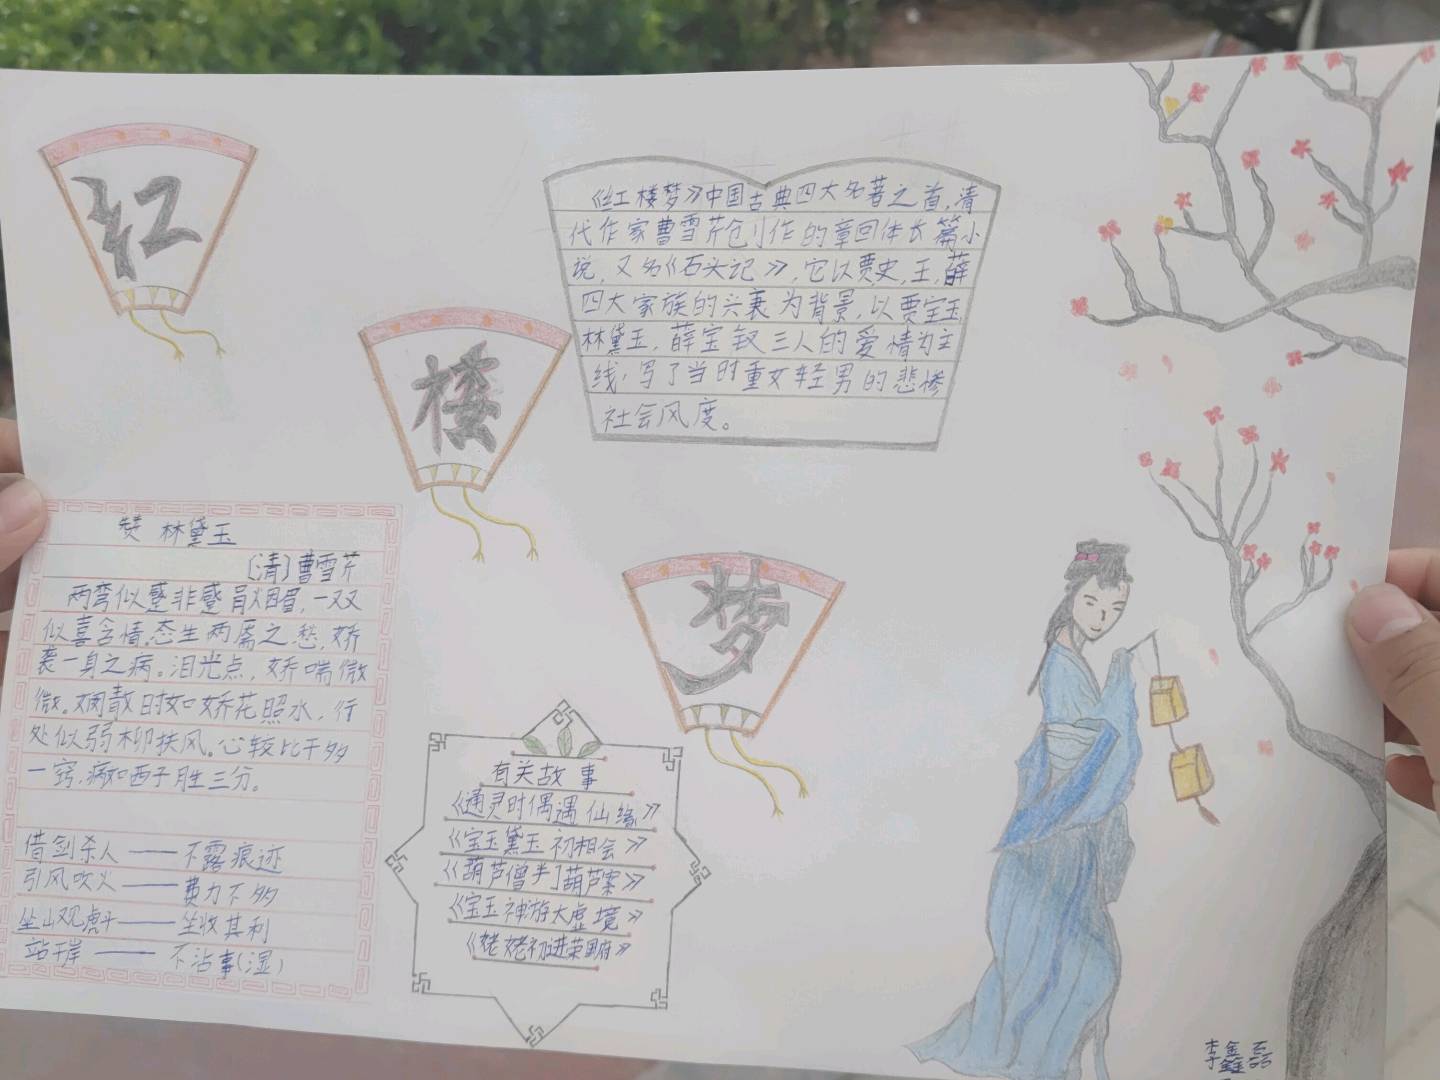 红
楼
梦
《红楼梦》中国古典四大名著之首,清
代作家曹雪芹创作的章回体长篇小
说,又名《石头记》,它以贾史,王,薛
四大家族的兴衰为背景,以贾宝玉
林黛玉,薛宝钗三人的爱情为主
线,写了当时重女轻男的悲惨
社会风度。
赞 林黛玉
〔清〕曹雪芹
两弯似蹙非蹙罥烟眉,一双
似喜含情。态生两靥之愁,娇
袭一身之病。泪光点,娇喘微
微。娴散时如娇花照水,行
处似弱柳扶风。心较比干多
一窍,病如西子胜三分。
借剑杀人——不露痕迹
引风吹火——费力不多
坐山观虎斗——坐收其利
站干岸——不沾事(湿)
有关故事
《通灵时偶遇仙缘》
《宝玉黛玉初相会》
《葫芦僧判葫芦案》
《宝玉神游太虚境》
《姥姥初进荣国府》
李鑫磊